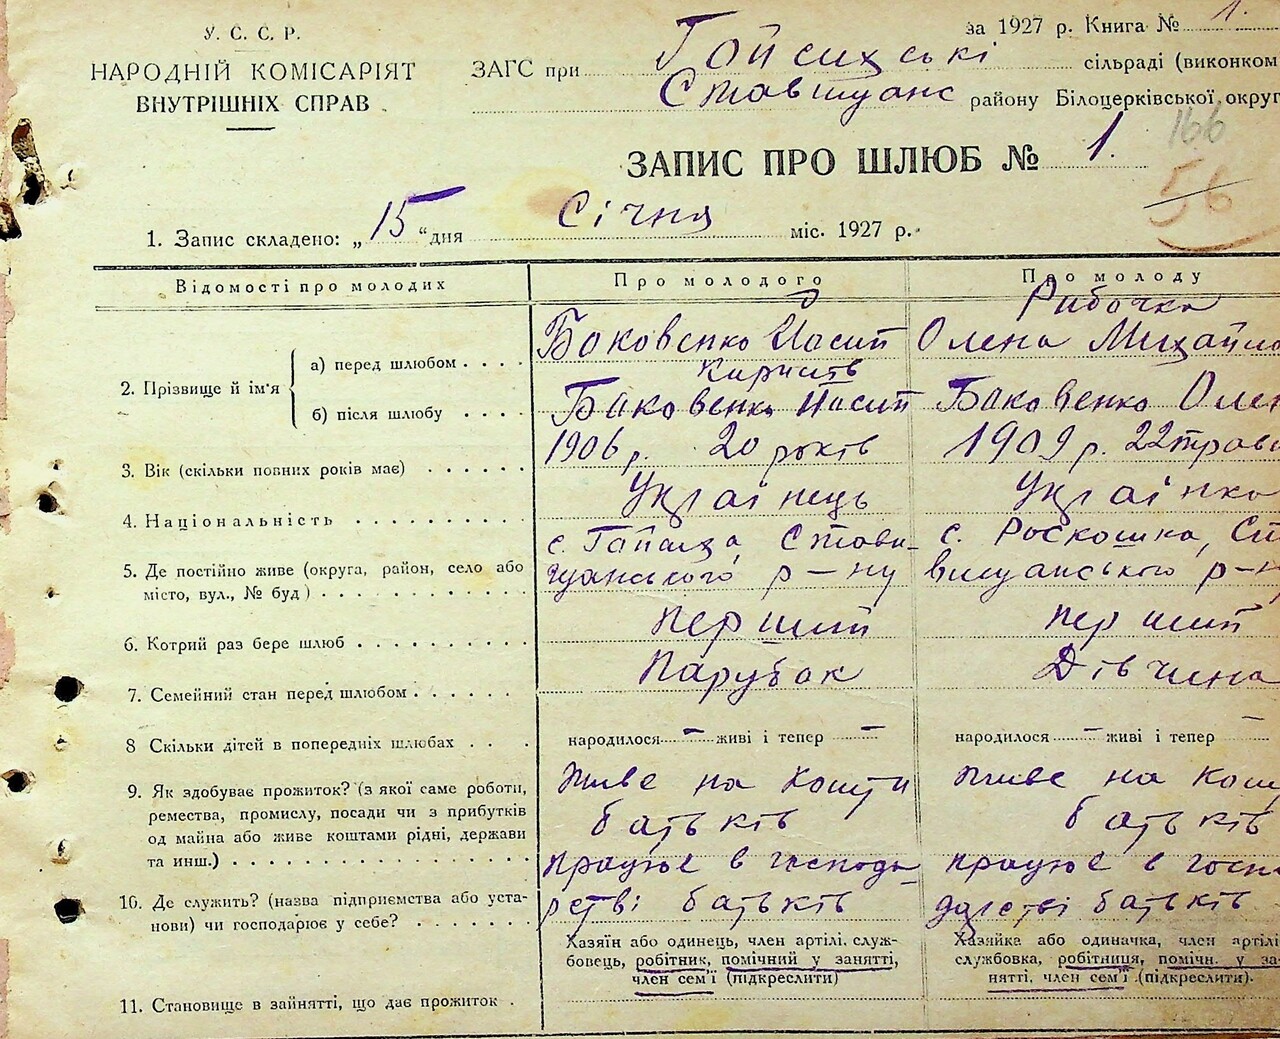 У. С. С. Р.
НАРОДНІЙ КОМІСАРІЯТ
ВНУТРІШНІХ СПРАВ
за 1927 р. Книга № 1.
ЗАГС при Гойсихські сільраді (виконком
Ставищанс району Білоцерківської округ
166
ЗАПИС ПРО ШЛЮБ № 1.
56
1. Запис складено: „15“ дня Січня міс. 1927 р.
Відомості про молодих
Про молодого
Про молоду
2. Прізвище й ім'я
а) перед шлюбом
Баковенко Йосип
Рибачка
Олена Михайло
б) після шлюбу
Баковенко Йосип
Баковенко Олен
3. Вік (скільки повних років має)
1906 р. 20 років
1909 р. 22 трав
4. Національність
Українець
Українка
5. Де постійно живе (округа, район, село або
місто, вул., № буд)
с. Гайсиха, Стави-
щанського р-ну
с. Роскошна, Ст
вищанського р-н
6. Котрий раз бере шлюб
перший
перший
7. Семейний стан перед шлюбом
Парубок
Дівчина
8 Скільки дітей в попередніх шлюбах
народилося – живі і тепер –
народилося – живі і тепер –
9. Як здобуває прожиток? (з якої саме роботи,
ремества, промислу, посади чи з прибутків
од майна або живе коштами рідні, держави
та инш.)
живе на кошти
батьків
живе на кош
батьків
10. Де служить? (назва підприємства або уста-
нови) чи господарює у себе?
працює в господа-
рстві батьків
працює в госпо-
дарстві батьків
11. Становище в зайнятті, що дає прожиток
Хазяїн або одинець, член артілі, служ-
бовець, робітник, помічний у занятті,
член сем'ї (підкреслити)
Хазяйка або одиначка, член артілі
службовка, робітниця, помічн. у за-
нятті, член сем'ї (підкреслити).